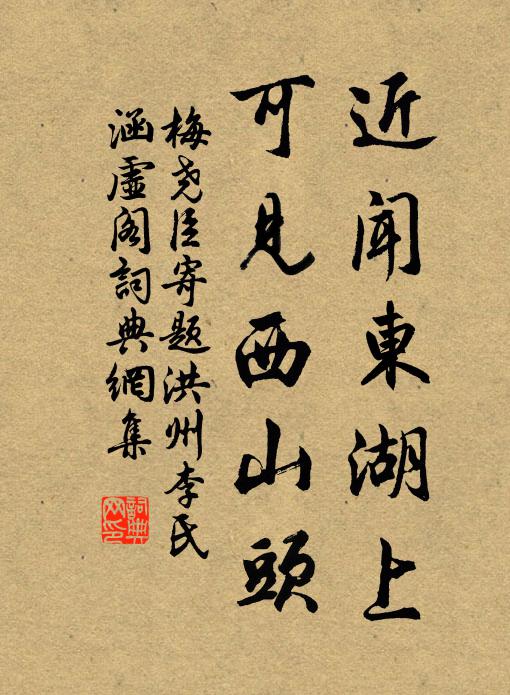 近闻東湖上
可見西山頭
梅尧臣寄题洪州李氏
涵虛阁詞典網集
詞典网印